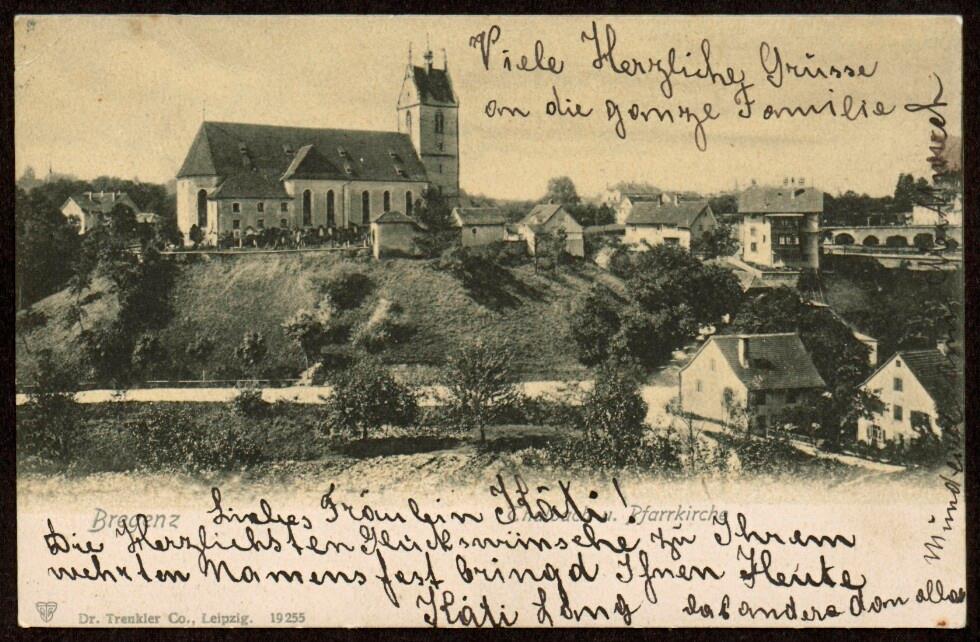 Viele Herzliche Grüsse
an die ganze Familie
Bregenz
Thalbach u. Pfarrkirche
Liebes Fräulein Käti!
Die Herzlichsten Glückswünsche zu Ihrem
wehrten Namensfest bringd Ihnen Heute
Käti Lang das andere dan alles
Mund
Dr. Trenkler Co., Leipzig. 19255